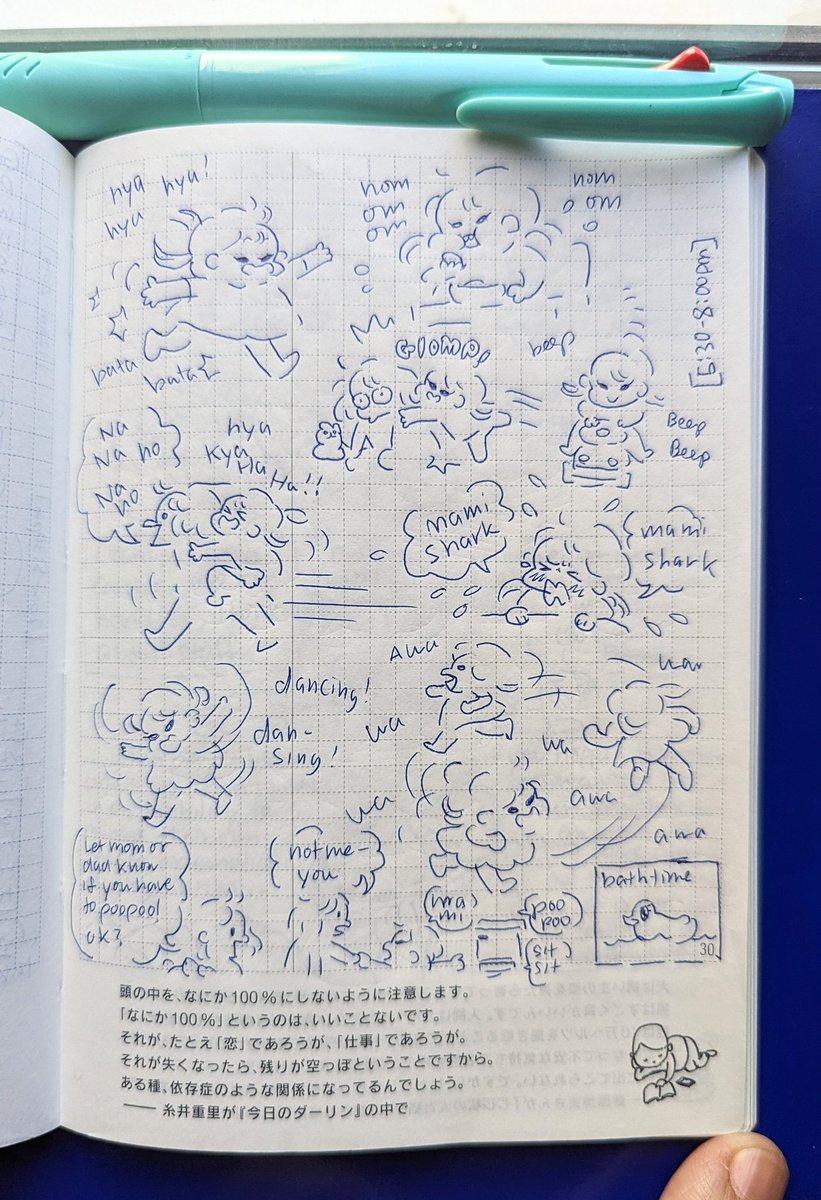 nya nya!
nya
nom
om
om
nom
om
[6:30-8:00pm]
bata
bata
beep
Beep
Beep
Na
Na no
Na
no
nya
Kya
Ha
Ha!!
mami
shark
mami
shark
dancing!
dan-
sing!
Awa
wa
wa
wa
wa
awa
awa
Let mom or
dad know
if you have
to poopoo!
ok?
not me-
you
ma
mi
poo
poo
sit
sit
bathtime
30
頭の中を、なにか100%にしないように注意します。
「なにか100%」というのは、いいことないです。
それが、たとえ「恋」であろうが、「仕事」であろうが。
それが失くなったら、残りが空っぽということですから。
ある種、依存症のような関係になってるんでしょう。
—— 糸井重里が『今日のダーリン』の中で